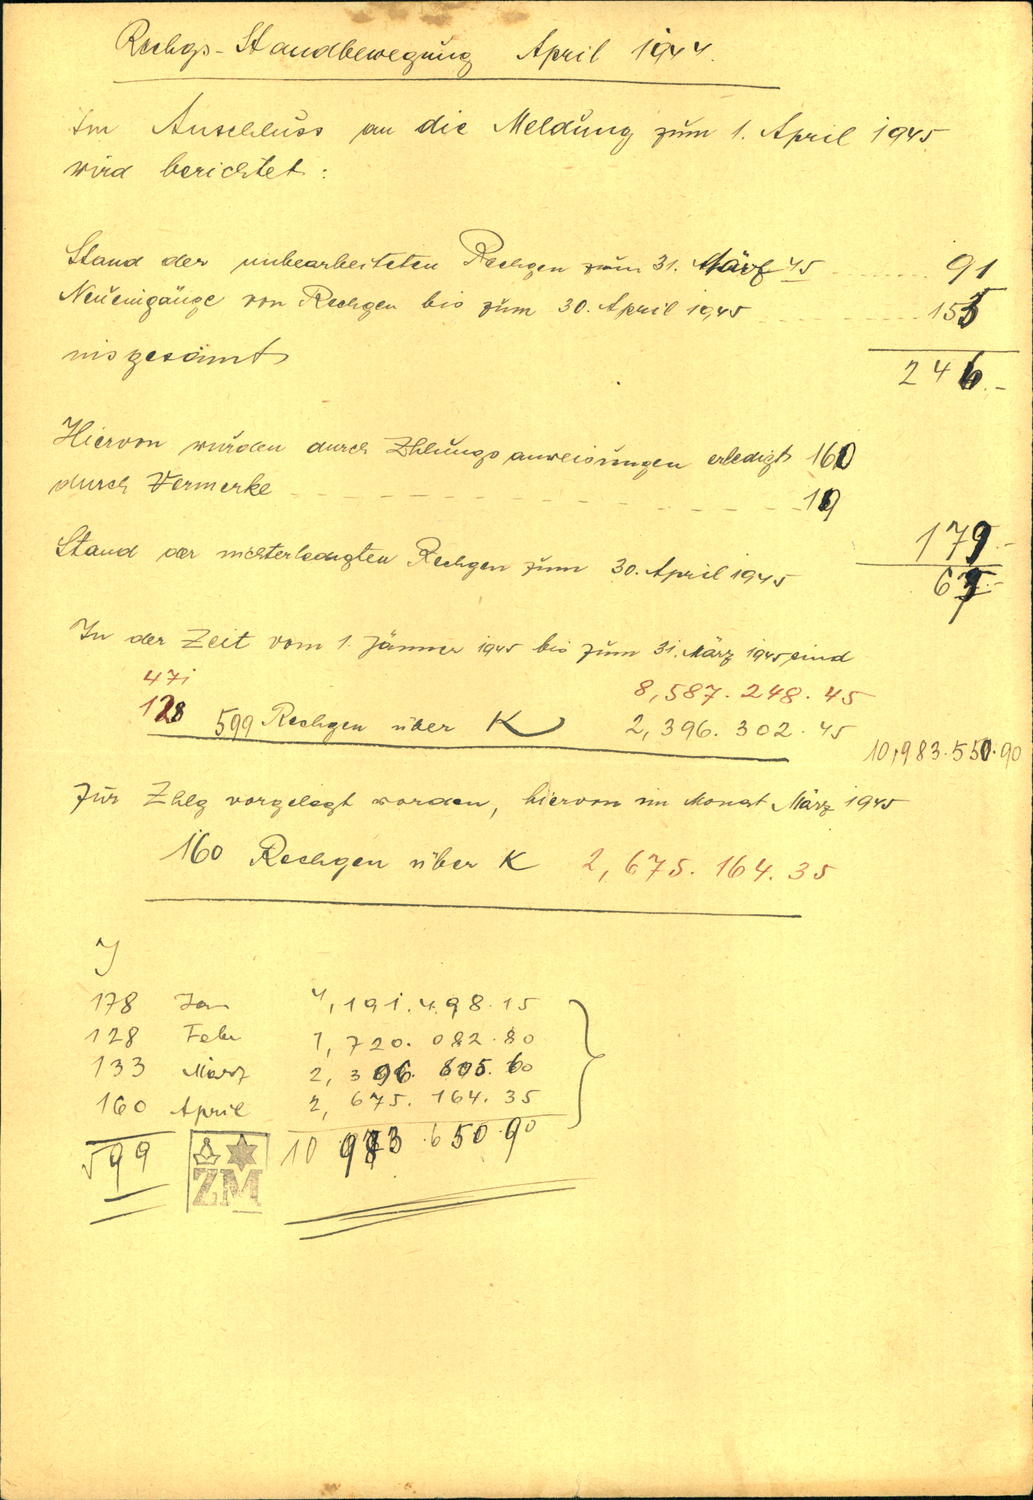 Rechgs-Standbewegung April 1944.
Im Anschluss an die Meldung zum 1. April 1945
wird berichtet:
Stand der unbearbeiteten Rechgen zum 31. März 45 91
Neueingänge von Rechgen bis zum 30. April 1945 155
insgesamt
246.-
Hiervon wurden durch Zhlungsanweisungen erledigt 160
durch Vermerke 19
179.-
Stand der nichterledigten Rechgen zum 30. April 1945 67.-
In der Zeit vom 1. Jänner 1945 bis zum 31. März 1945 sind
471 8,587.248.45
128 599 Rechgen über K 2,396.302.45
10,983.550.90
Zur Zhlg vorgelegt worden, hiervon im Monat März 1945
160 Rechgen über K 2,675.164.35
178 Jan 4,191.498.15
128 Febr 1,720.082.80
133 März 2,396.805.60
160 April 2,675.164.35
599 10 983.650.90
ZM